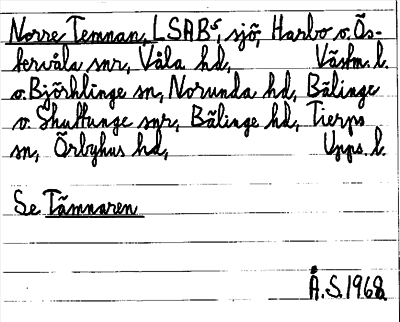 Norre Temnan, LSABˢ, sjö, Harbo o. Ös-
tervåla snr, Våla hd, Västm. l.
o. Björklinge sn, Norunda hd, Bälinge
o. Skuttunge snr, Bälinge hd, Tierps
sn, Örbyhus hd, Upps. l.
Se Tämnaren
Å.S. 1968